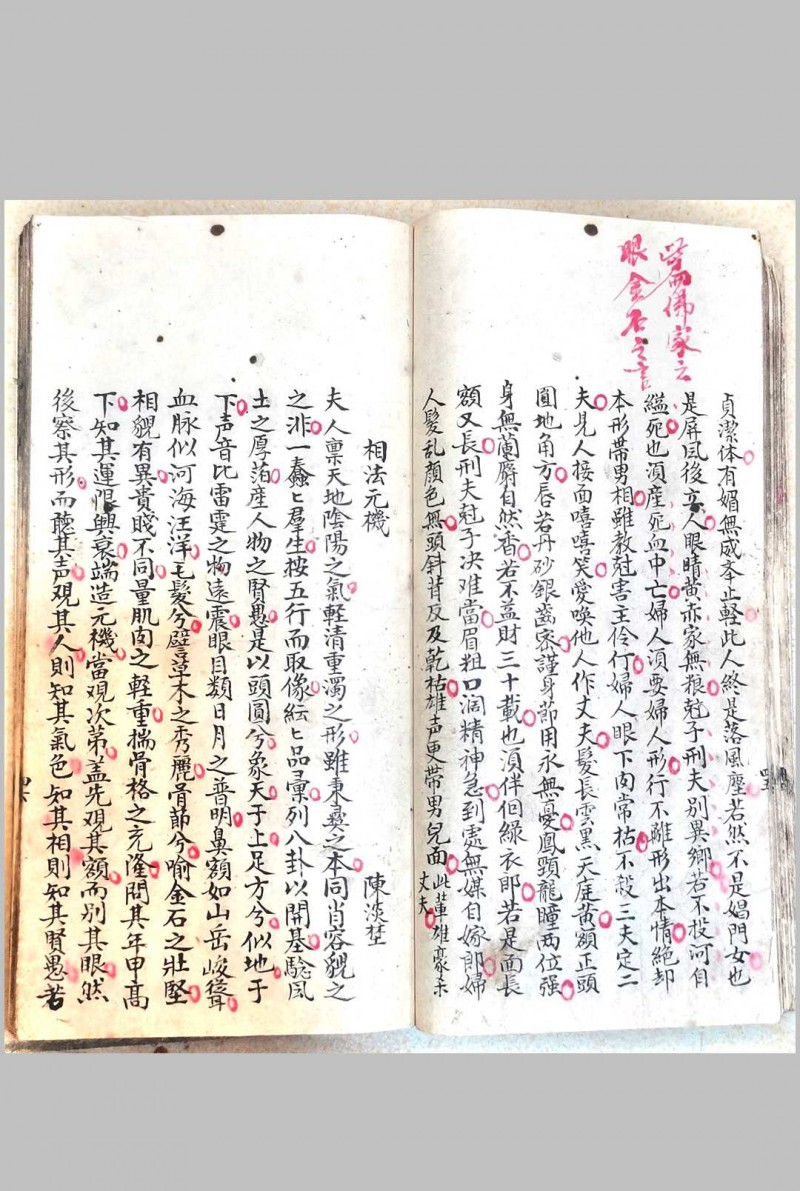 佛家云
眼金石之言
貞潔体有媚無威举止軽此人終是落風塵若然不是娼門女也
是屏風後立人眼睛黄赤家無粮尅子刑夫別異鄉若不投河自
縊死也湏産死血中亡婦人湏要婦人形行不離形出本情絶却
本形帯男相雖教尅害主伶仃婦人眼下肉常枯不殺三夫定二
夫見人接面嘻嘻笑愛喚他人作丈夫髮長雲黑天庭黄額正頭
圓地角方唇若丹砂銀齒密謹身節用永無憂鳳頸龍瞳両位强
身無蘭麝自然香若不益財三十載也湏伴侶緑衣郎若是面長
額又長刑夫尅子决难當眉粗口濶精神急到處無媒自嫁郎婦
人髮乱顔色無頭斜背反及乾枯雄声更帯男兒面此輩雄豪未
丈夫
相法元機
陳淡埜
夫人禀天地陰陽之氣軽清重濁之形雖秉彛之本同肖容貌之
之非一蠢ヒ羣生按五行而取像紜ヒ品彙列八卦以開基騐風
土之厚薄産人物之賢愚是以頭圓兮象天于上足方兮似地于
下声音比雷霆之物遠震眼目類日月之普明鼻額如山岳峻聳
血脉似河海汪洋毛髮兮譬草木之秀麗骨節兮喻金石之壯堅
相貌有異貴賤不同量肌肉之軽重揣骨格之充隆問其年甲高
下知其運限興衰端造元機當观次第盖先观其額而別其眼然
後察其形而聽其声观其人則知其氣色知其相則知其賢愚若